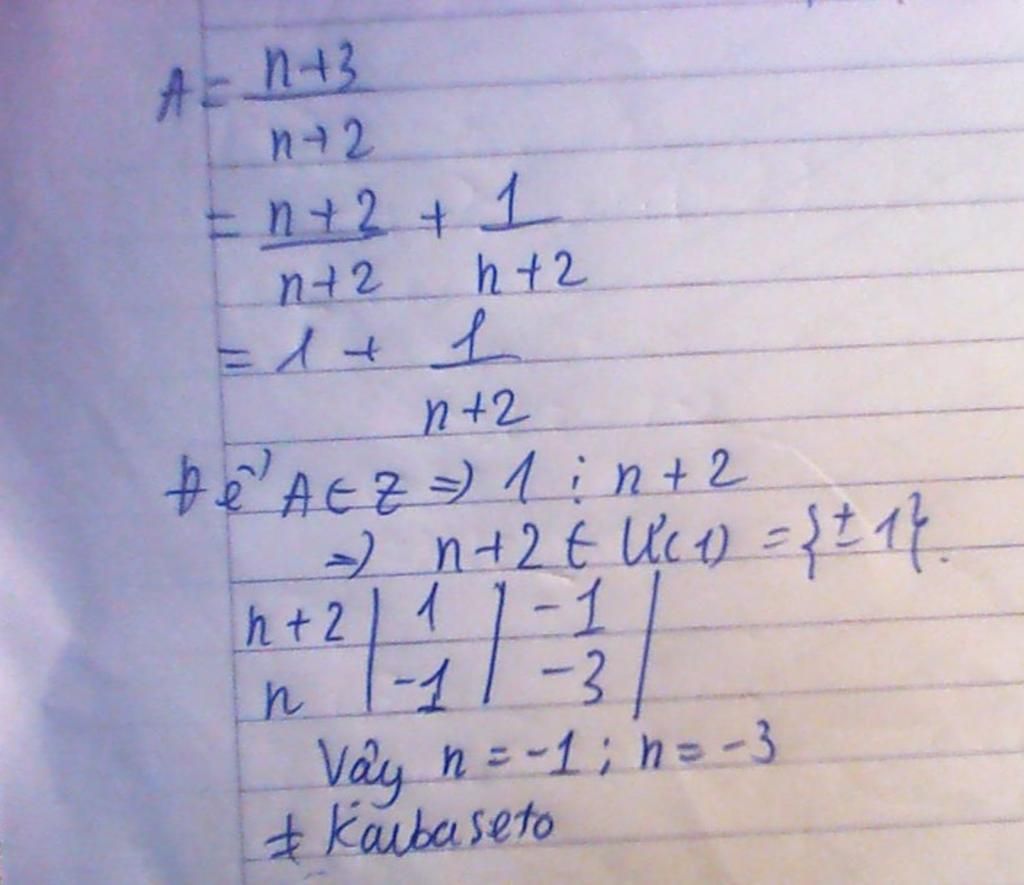 A = n+3 / n+2
= n+2 / n+2 + 1 / n+2
= 1 + 1 / n+2
Để A ∈ Z => 1 ⋮ n+2
=> n+2 ∈ Ư(1) = {±1}.
n+2 | 1 | -1 |
n | -1 | -3 |
Vây n = -1 ; n = -3
# Kaibaseto